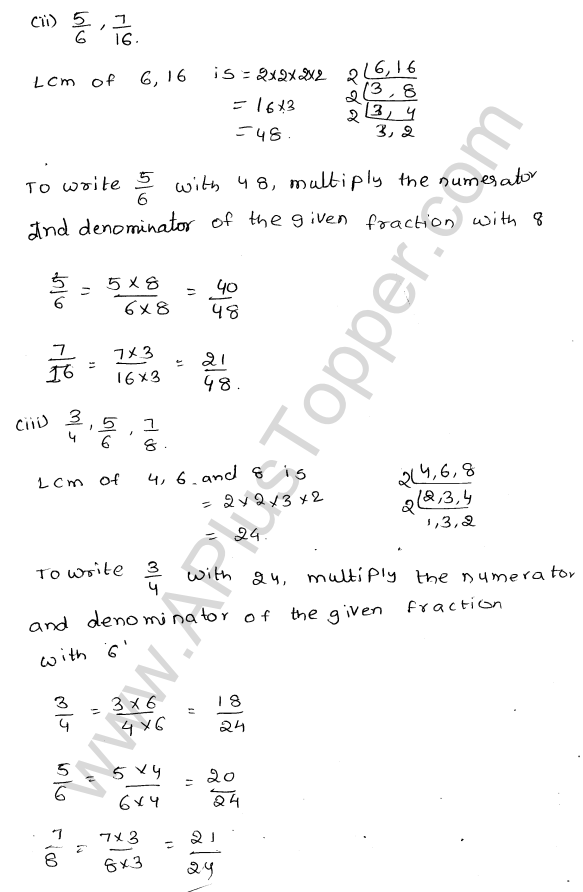 (ii) 5/6 , 7/16.
LCM of 6, 16 is = 2×2×2×2 2 | 6, 16
= 16×3 2 | 3, 8
= 48. 2 | 3, 4
3, 2
To write 5/6 with 48, multiply the numerator
And denominator of the given fraction with 8
5/6 = 5×8/6×8 = 40/48
7/16 = 7×3/16×3 = 21/48.
(iii) 3/4, 5/6, 7/8.
LCM of 4, 6 and 8 is 2 | 4, 6, 8
= 2×2×3×2 2 | 2, 3, 4
= 24. 1, 3, 2
To write 3/4 with 24, multiply the numerator
and denominator of the given fraction
with '6'
3/4 = 3×6/4×6 = 18/24
5/6 = 5×4/6×4 = 20/24
7/8 = 7×3/8×3 = 21/24
www.APlusTopper.com